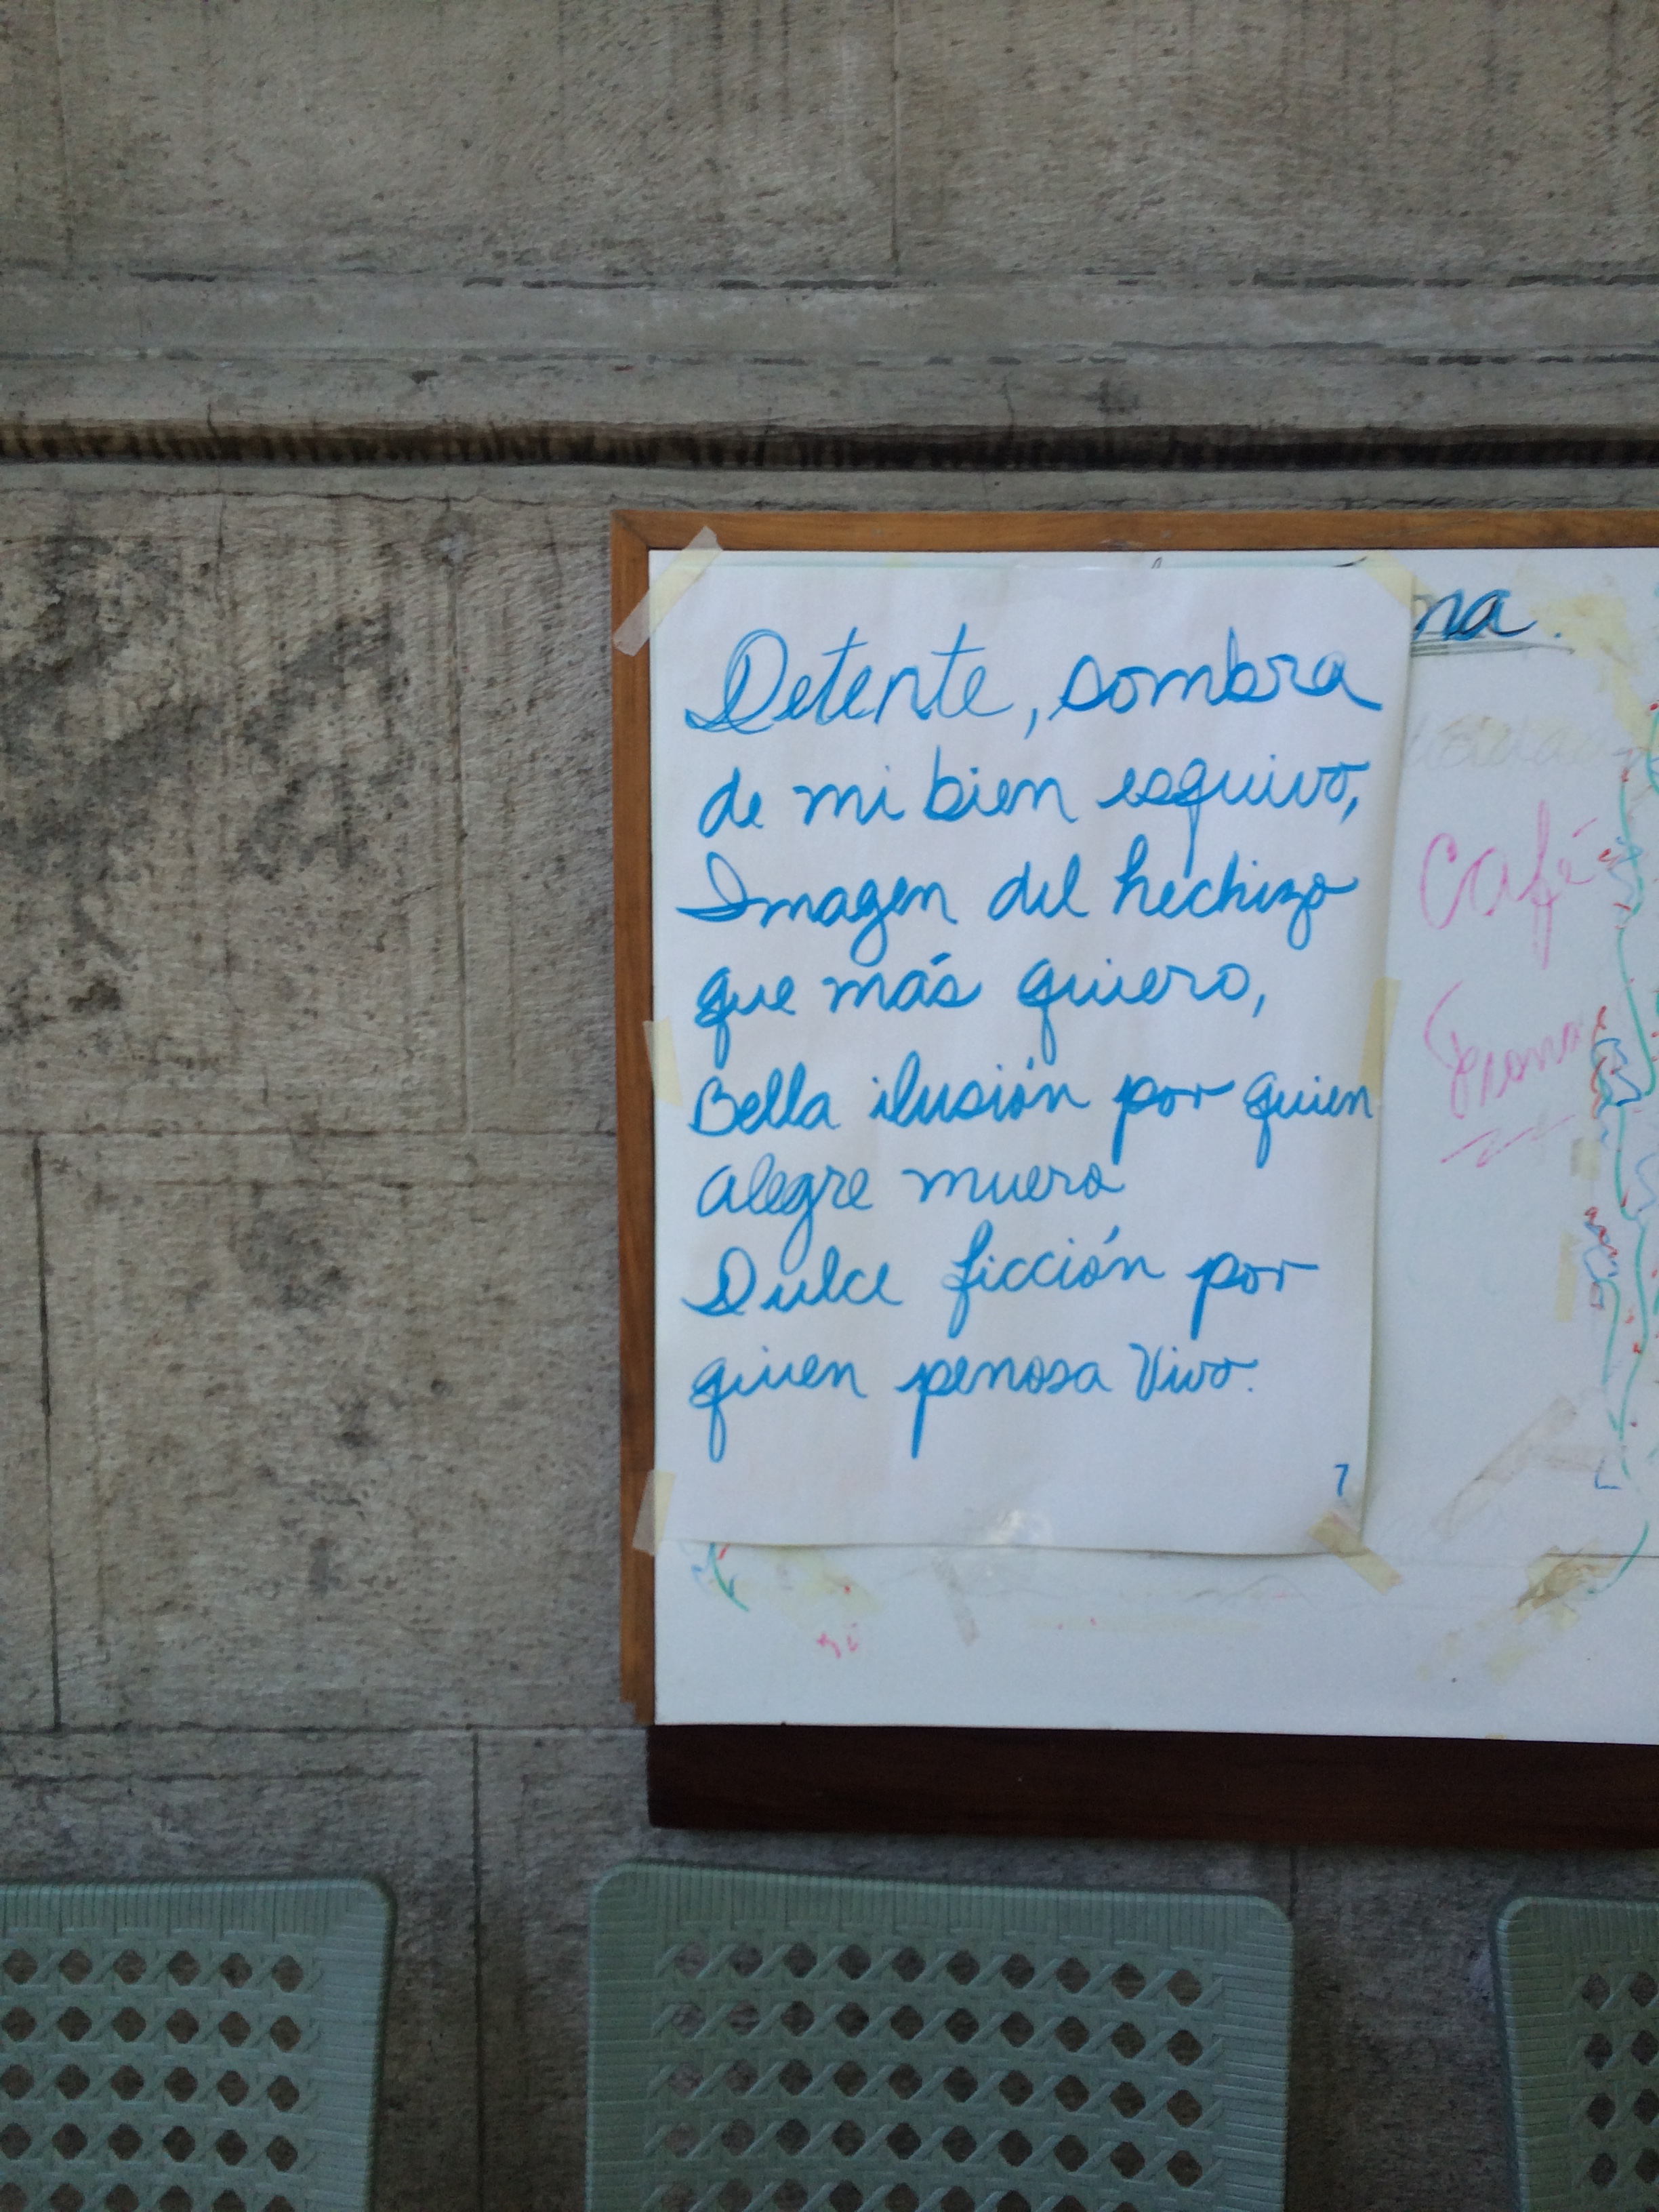 Detente, sombra
de mi bien esquivo,
Imagen del hechizo
que más quiero,
Bella ilusión por quien
alegre muero
Dulce ficción por
quien penosa Vivo.
7
na.
Café